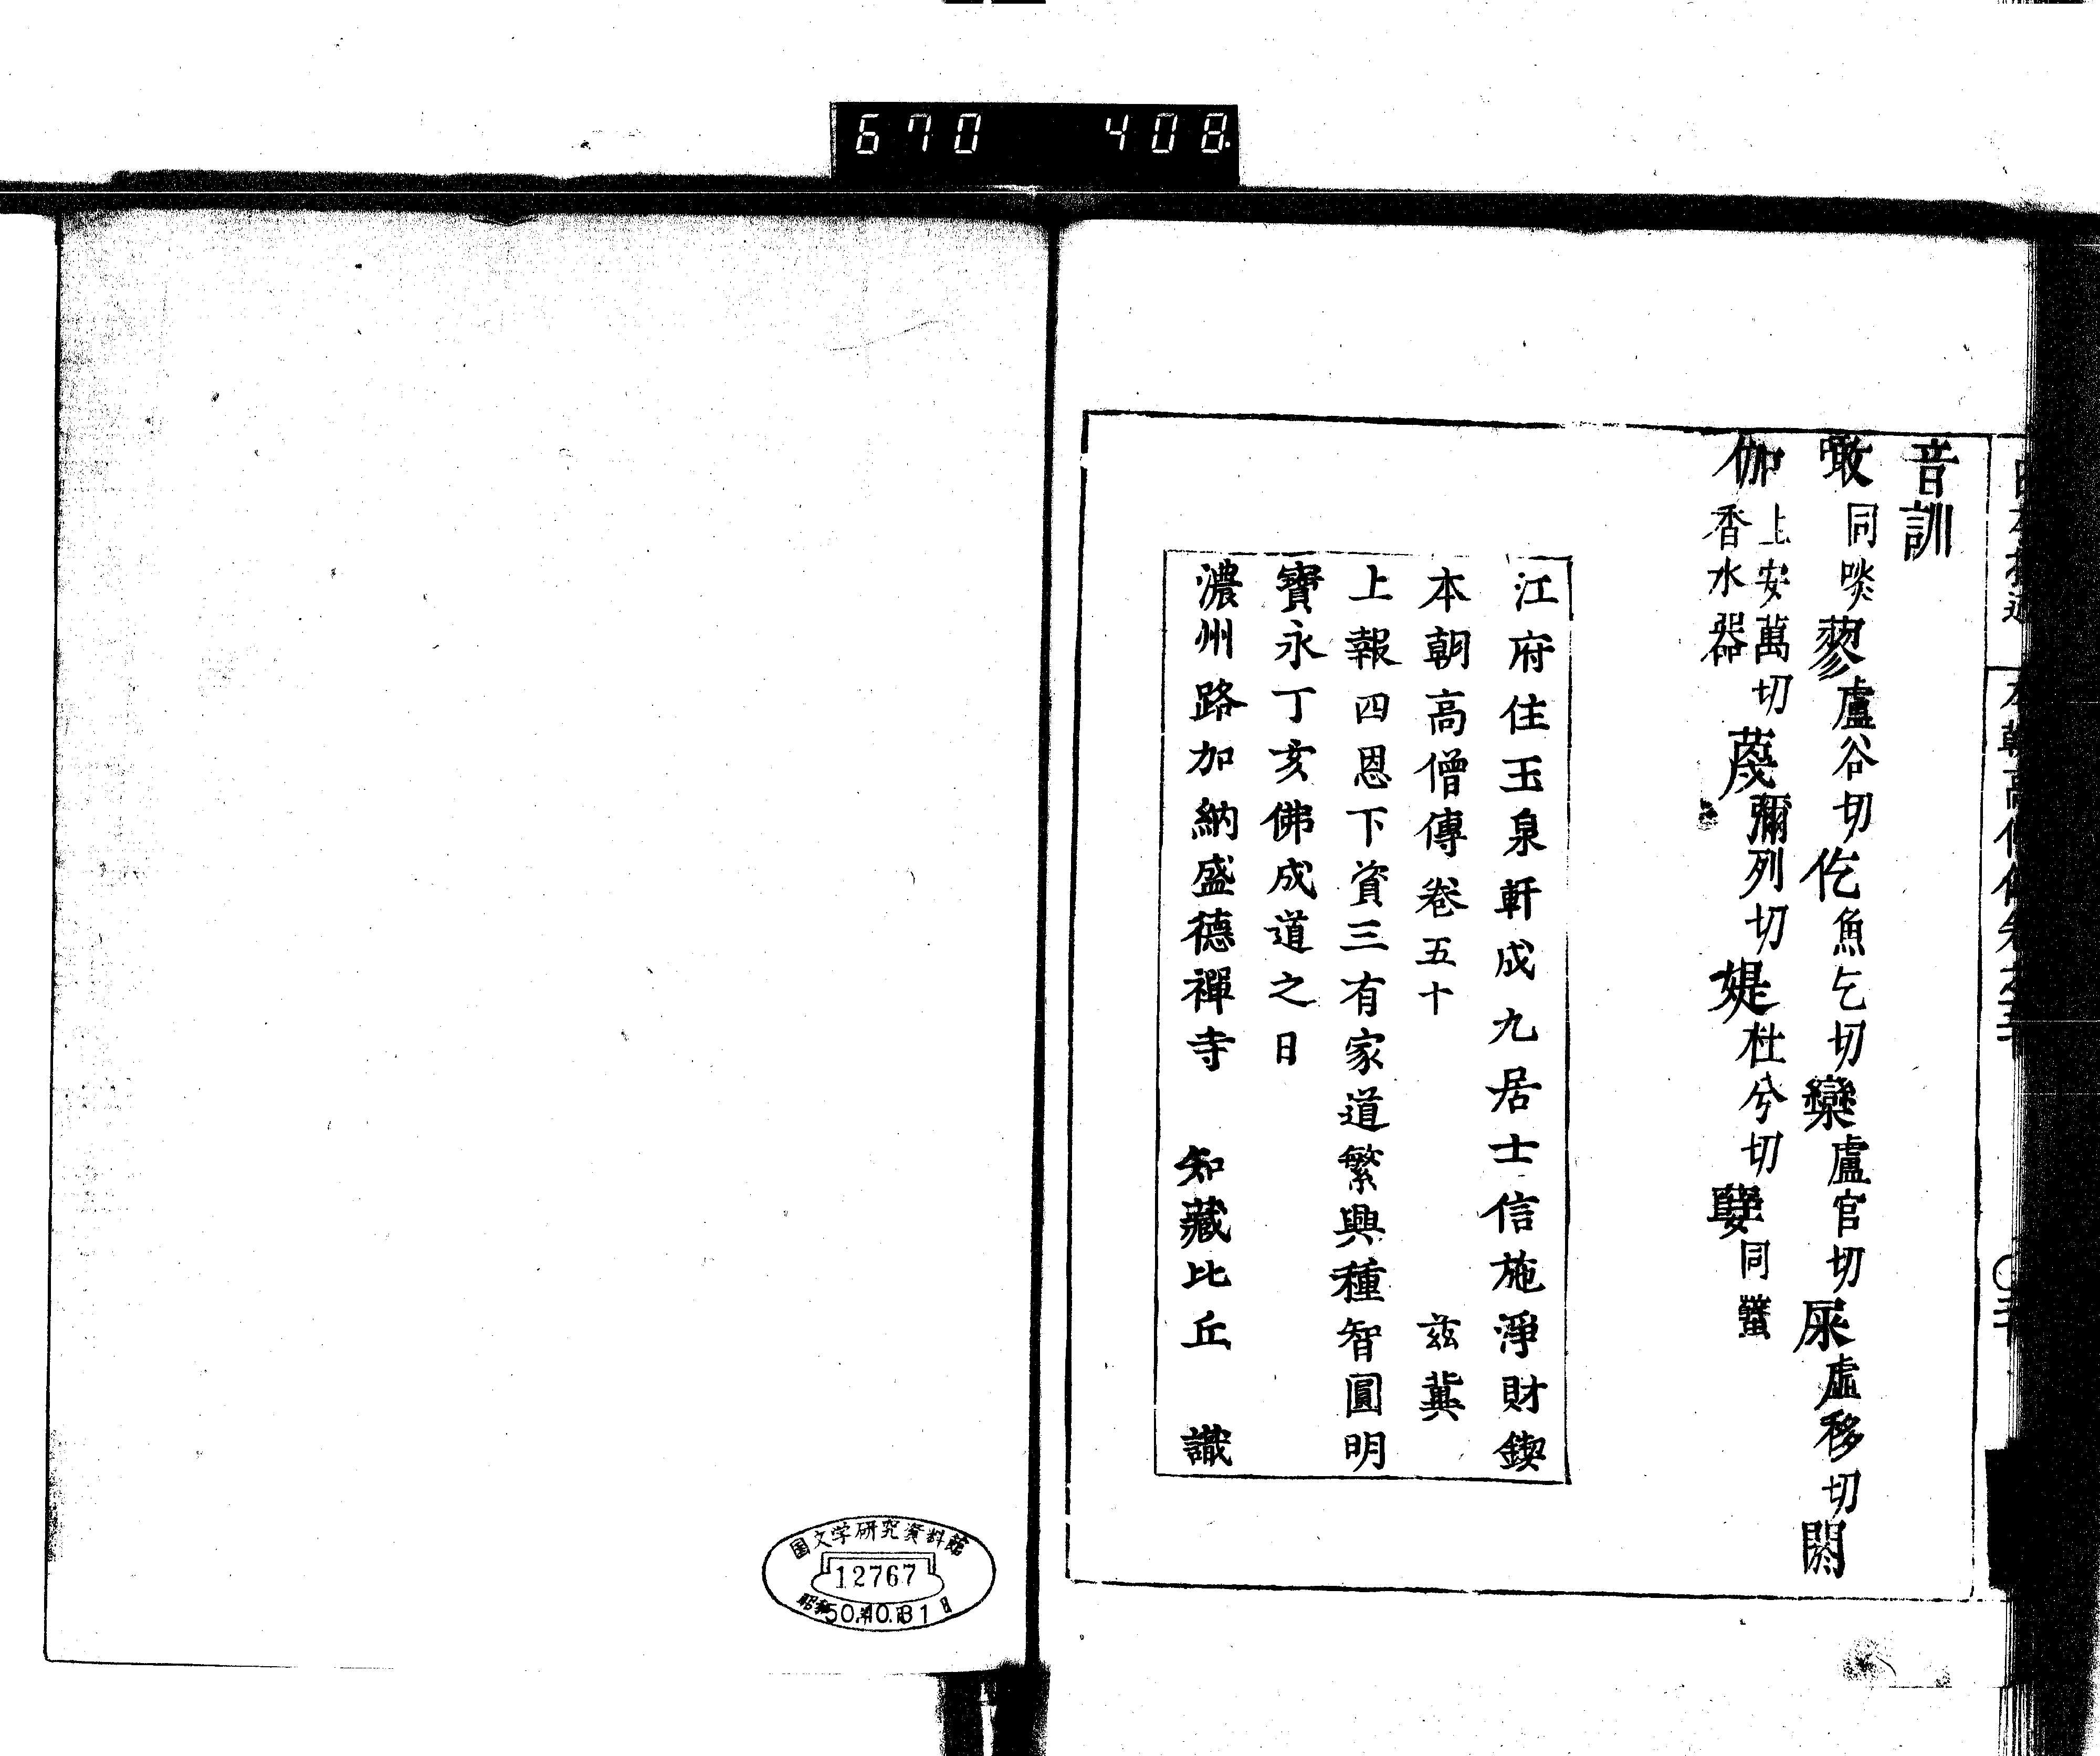 670 408
音訓
噉同啖蓼盧谷切仡魚乞切欒盧官切屎虛移切閼
伽上安萬切香水器蔑彌列切媞杜兮切
江府住玉泉軒成九居士信施淨財鍥
本朝高僧傳卷五十 茲冀
上報四恩下資三有家道繁興種智圓明
寶永丁亥佛成道之日
濃州路加納盛德禪寺 知藏比丘 識
国文学研究資料館
12767
昭和50.10.31日